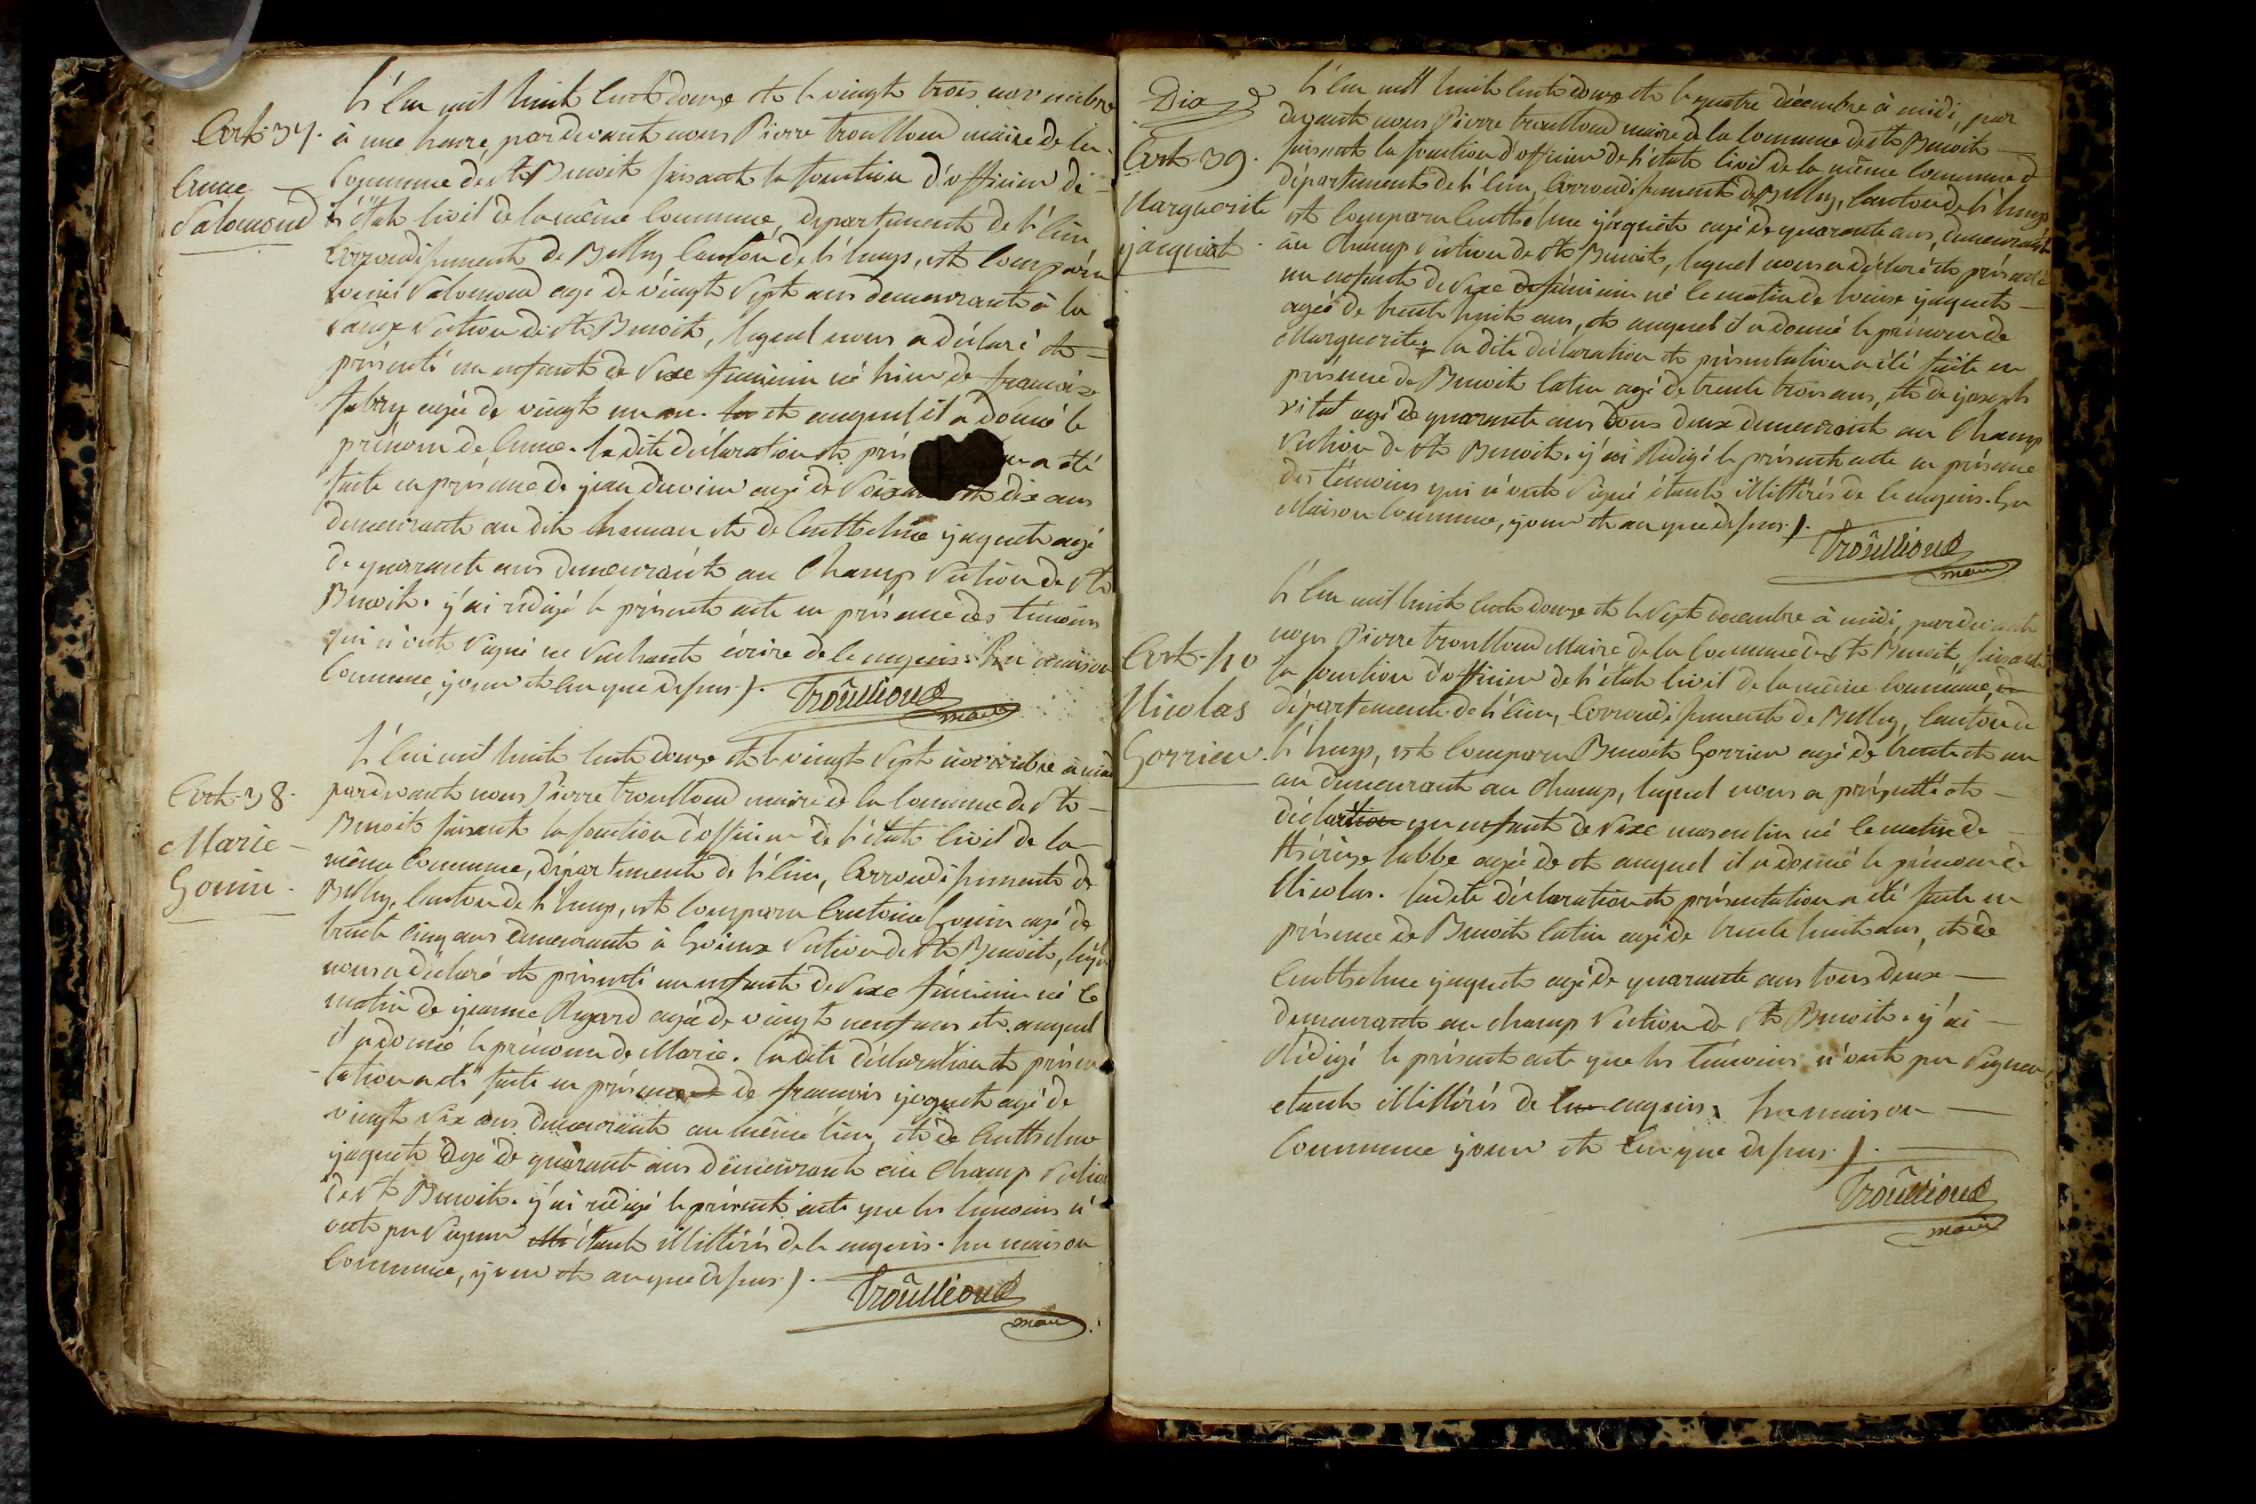 Art. 37.
Anne
Salomond
L'an mil huit cent douze et le vingt trois novembre
à une heure, pardevant nous Pierre trouilloud maire de la
Commune de St Benoit faisant la fonction d'officier de
l'état Civil de la même Commune, département de l'ain,
arrondissement de Belley Canton de l'huys, est Comparu
Salomond agé de vingt sept ans demeurant à la
section de St Benoit, lequel nous a déclaré et
présenté un enfant de sexe féminin né hier de françoise
fabry agée de vingt un an. et auquel il a donné le
prénom de Anne. la dite déclaration et pres a été
faite en présence de jean agé de dix ans
demeurant au dit hameau et de Anthelme jaquet agé
de quarante ans demeurant au Champ section de St
Benoit. j'ai rédigé le présent acte en présence des témoins
qui n'ont signé ne sachant écrire de ce enquis. En maison
Commune, jour et an que dessus ).
Trouilloud
maire
Art. 38.
Marie
Gonin.
L'an mil huit cent douze et le vingt sept novembre à midi
pardevant nous Pierre trouilloud maire de la Commune de St
Benoit faisant la fonction d'officier de l'état Civil de la
même Commune, département de l'ain, Arrondissement de
Belley, Canton de l'huys, est Comparu Antoine Gonin agé de
trente cinq ans demeurant à section de St Benoit,
nous a déclaré et présenté un enfant de sexe féminin né ce
matin de jeanne agée de vingt neuf ans et auquel
il a donné le prénom de Marie. la dite déclaration et présen
-tation a été faite en présence de françois jaquet agé de
vingt six ans demeurant au même lieu, et de Anthelme
jaquet agé de quarante ans demeurant au Champ section
de St Benoit. j'ai rédigé le présent acte que les témoins n'
ont pu signer étant illittérés de ce enquis. En maison
Commune, jour et an que dessus ).
Trouilloud
maire
Art. 39.
Marguerite
jacquet
L'an mil huit cent douze et le quatre décembre à midi, par
devant nous Pierre trouilloud maire de la Commune de St Benoit
faisant la fonction d'officier de l'état Civil de la même Commune
département de l'ain, Arrondissement de Belley, Canton de l'huys
est Comparu Anthelme jaquet agé de quarante ans, demeurant
au Champ section de St Benoit, lequel nous a déclaré et présenté
un enfant de sexe féminin né ce matin de louise jaquet
agée de trente huit ans, et auquel il a donné le prénom de
Marguerite. la dite déclaration et présentation a été faite en
présence de Benoit latin agé de trente trois ans, et de joseph
vital agé de quarante ans tous deux demeurant au Champ
section de St Benoit. j'ai rédigé le présent acte en présence
des témoins qui n'ont signé étant illittérés de ce enquis. En
Maison Commune, jour et an que dessus ).
Trouilloud
maire
Art. 40
Nicolas
Gorrieu.
L'an mil huit cent douze et le sept decembre à midi, pardevant
nous Pierre trouilloud Maire de la Commune de St Benoit, faisant
la fonction d'officier de l'état Civil de la même Commune,
département de l'ain, Arrondissement de Belley, Canton de
l'huys, est Comparu Benoit Gorrieu agé de trente et un
an demeurant au Champ, lequel nous a présenté et
déclaration un enfant de sexe masculin né ce matin de
thérèse labbe agée de et auquel il a donné le prénom de
Nicolas. ladite déclaration et présentation a été faite en
présence de Benoit latin agé de trente huit ans, et de
Anthelme jaquet agé de quarante ans tous deux
demeurant au champ section de St Benoit. j'ai
rédigé le présent acte que les témoins n'ont pu signer
etant illittérés de ce enquis. En maison
Commune jour et an que dessus ).
Trouilloud
maire